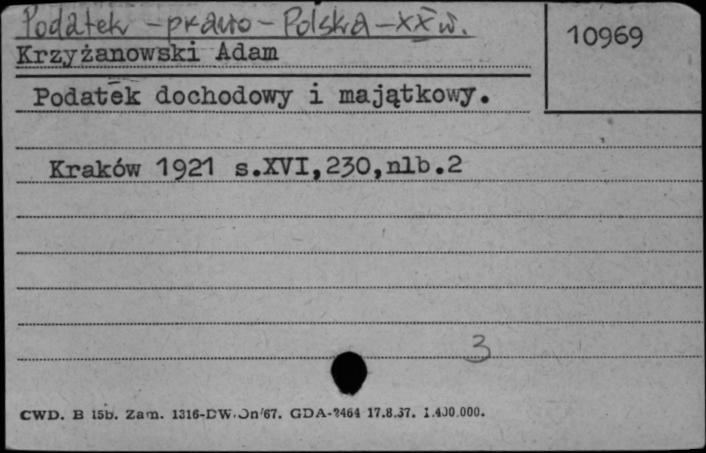 Podatek - prawo - Polska - XX w.
10969
Krzyżanowski Adam
Podatek dochodowy i majątkowy.
Kraków 1921 s.XVI,230,nlb.2
3
CWD. B 15b. Zam. 1316-DW. GDA-2464 17.8.67. 1.400.000.